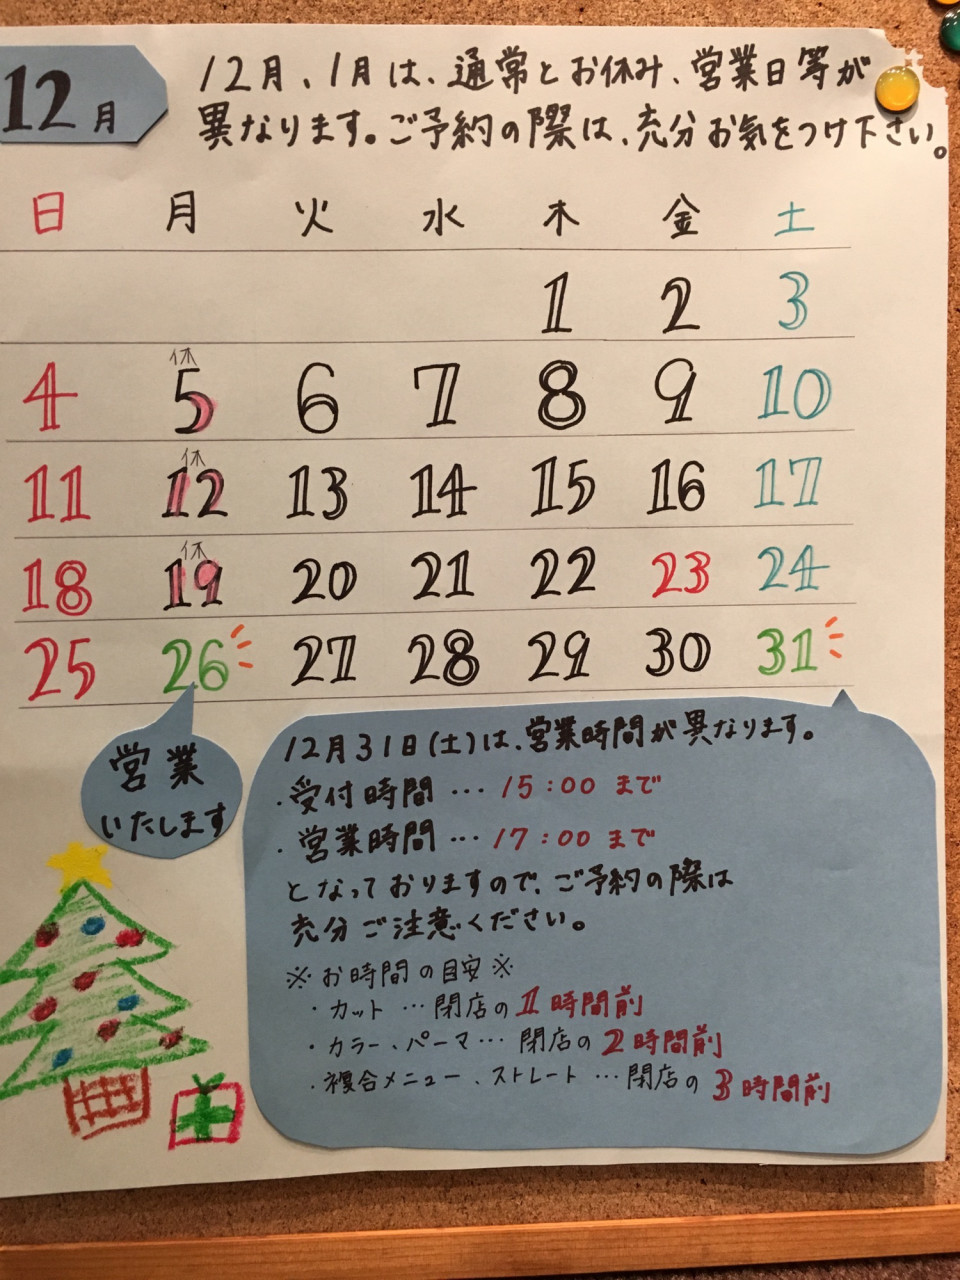 12月
12月、1月は、通常とお休み、営業日等が
異なります。ご予約の際は、充分お気をつけ下さい。
日 月 火 水 木 金 土
1 2 3
休
4 5 6 7 8 9 10
休
11 12 13 14 15 16 17
休
18 19 20 21 22 23 24
25 26 27 28 29 30 31
営業
いたします
12月31日(土)は、営業時間が異なります。
・受付時間 … 15:00 まで
・営業時間 … 17:00 まで
となっておりますので、ご予約の際は
充分ご注意ください。
※お時間の目安※
・カット … 閉店の1時間前
・カラー、パーマ … 閉店の2時間前
・複合メニュー、ストレート … 閉店の3時間前